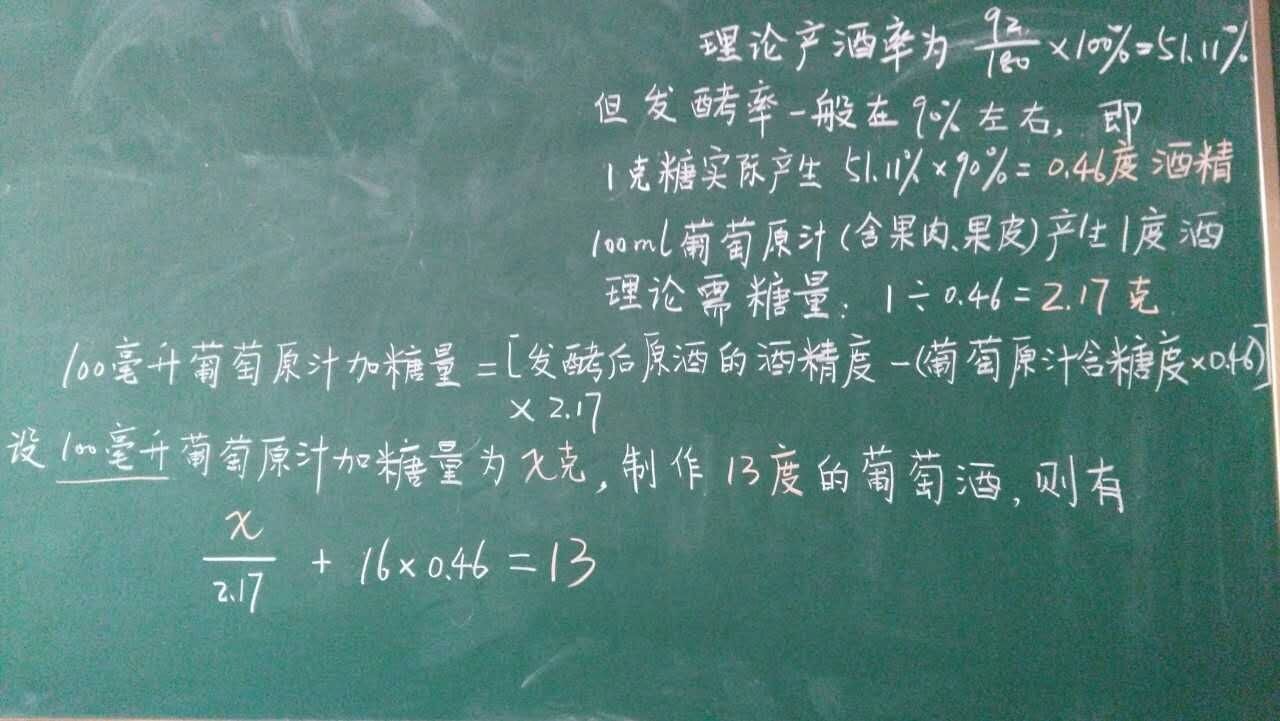 理论产酒率为 92/180 ×100%=51.11%
但发酵率一般在90%左右，即
1克糖实际产生 51.11%×90%=0.46度酒精
100ml葡萄原汁(含果肉、果皮)产生1度酒
理论需糖量：1÷0.46=2.17克
100毫升葡萄原汁加糖量=[发酵后原酒的酒精度-(葡萄原汁含糖度×0.46)]
×2.17
设100毫升葡萄原汁加糖量为x克，制作13度的葡萄酒，则有
x/2.17 + 16×0.46=13